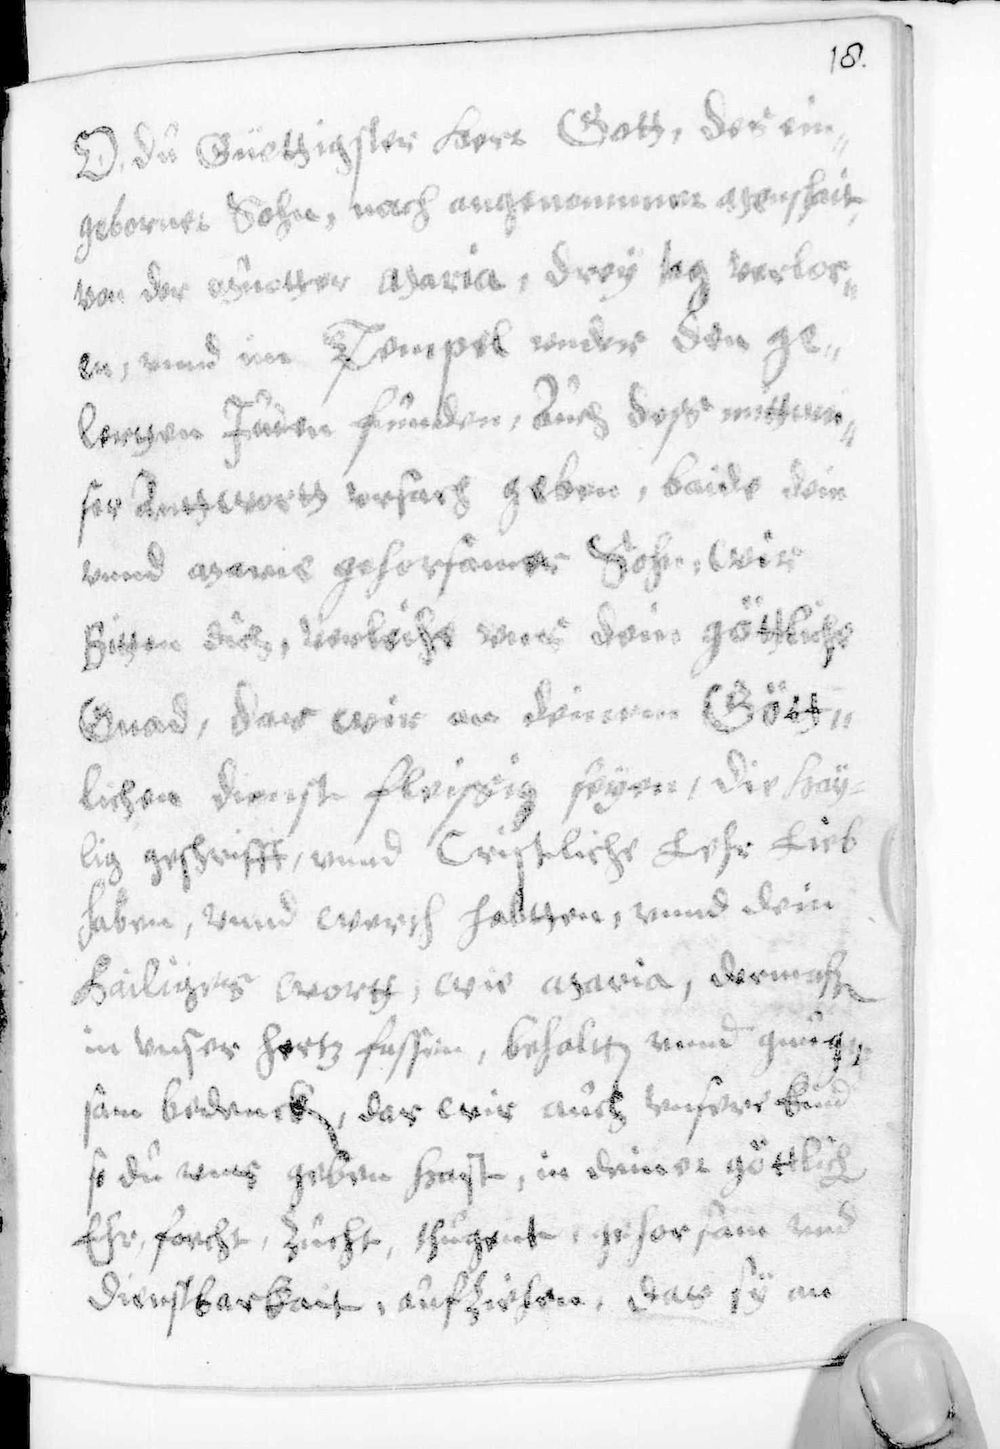 18.
O, du Güettigster herr Gott, der ein„
geborner Sohn, nach angenommner menshait
von der Muotter Maria, drey tag verlor„
en, vnnd im Tempel vnder den ge„
lertten Juden funden, Auch dess mitt wei„
ser Anttwortt vrsach geben, baide dein
vnnd Marie gehorsamer Sohn, wir
Bitten dich, verleihe vns dein göttliche
Gnad, das wir an deinem Gött„
lichen dienst fleissig seyen, die hay-
lig geschrifft, vnnd Cristliche Lehr Lieb
haben, vnnd werth haltten, vnnd dein
Hailiges wortt, wie Maria, dermassen
in vnser hertz fassen, behaltten vnnd gnug„
sam bedencken, das wir auch vnsere kind
so du vns geben hast, in deiner göttlich
Ehr, forcht, zucht, thugent, gehorsam vnd
dienstbarkait, aufziehen, das sy an